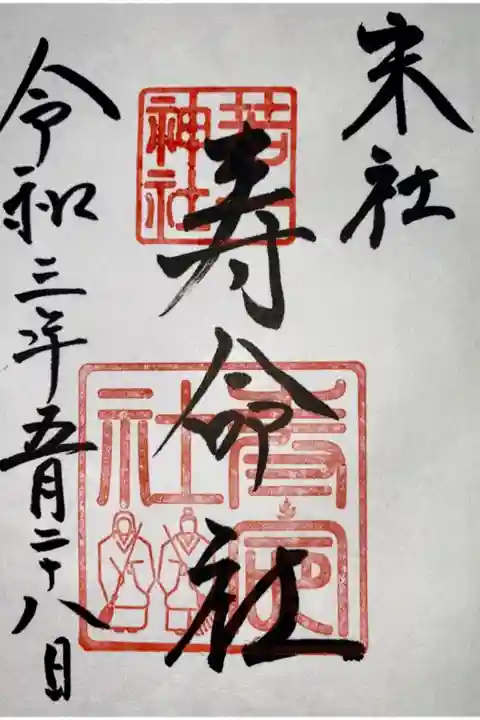 末社
寿命社
神社
令和三年五月二十八日